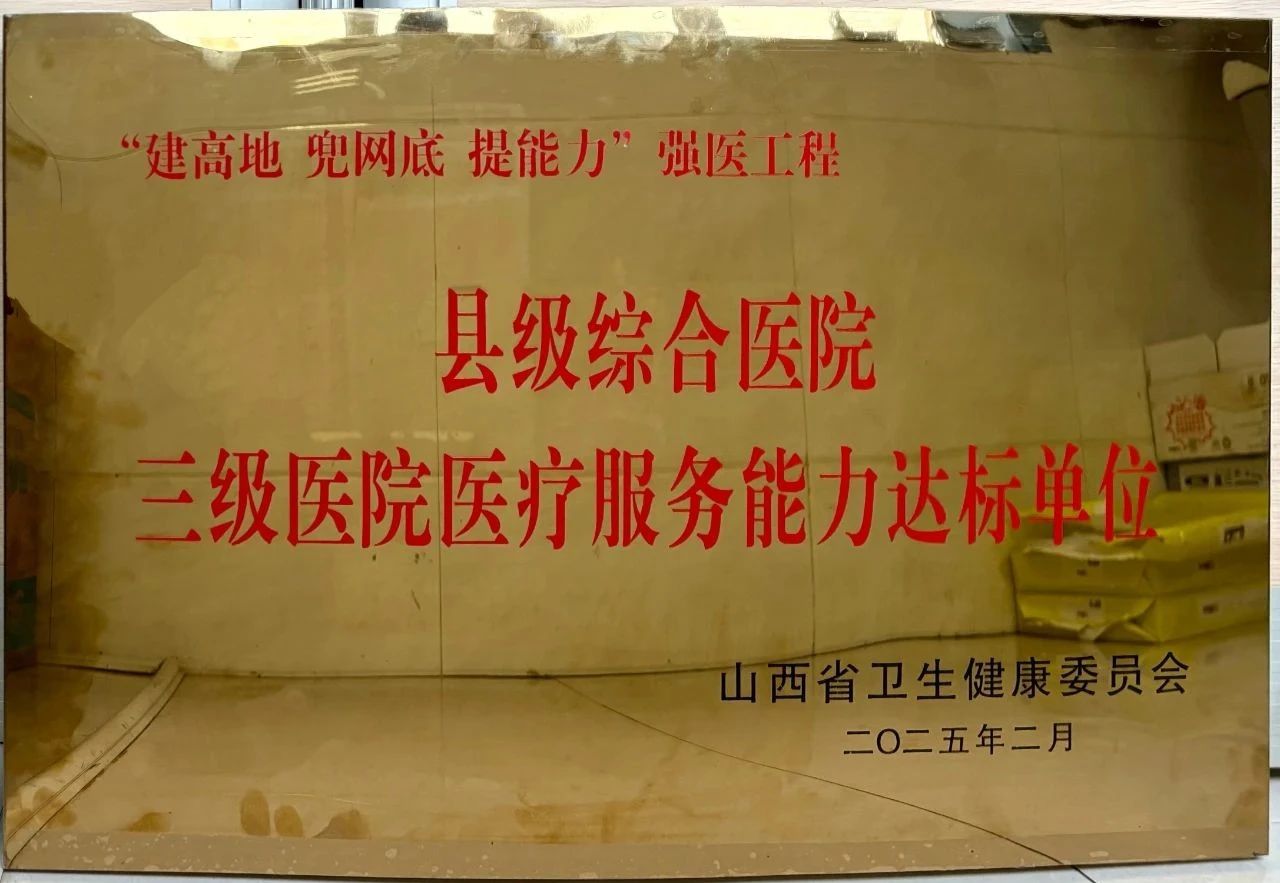 “建高地 兜网底 提能力”强医工程
县级综合医院
三级医院医疗服务能力达标单位
山西省卫生健康委员会
二〇二五年二月